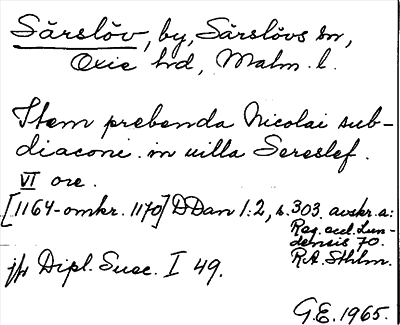 Särslöv, by, Särslövs sn,
Oxie hd, Malm. l.
Item prebenda Nicolai sub-
diaconi in uilla Sereslef.
VI ore.
[1164-omkr. 1170] DDan 1:2, s. 303. avskr. a:
Reg. eccl. Lun-
densis 70.
RA. Sthlm.
jfr Dipl. Suec. I 49.
G.E. 1965.